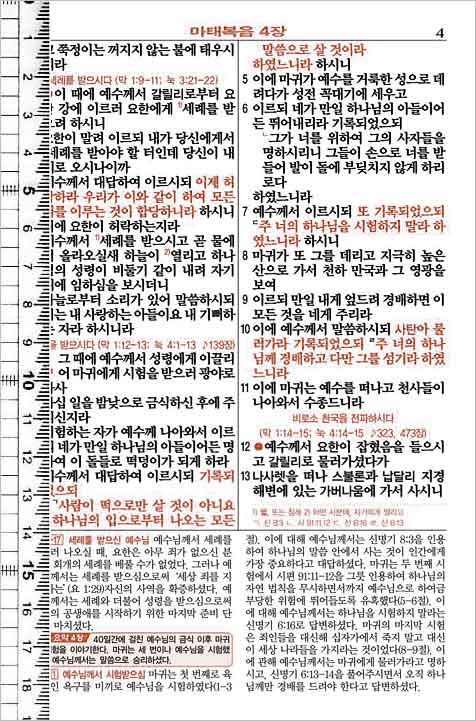 마태복음 4장
4
쭉정이는 꺼지지 않는 불에 태우시
리라
세례를 받으시다 (막 1:9-11; 눅 3:21-22)
이 때에 예수께서 갈릴리로부터 요
강에 이르러 요한에게 ¹⁾세례를 받
으려 하시니
요한이 말려 이르되 내가 당신에게서
세례를 받아야 할 터인데 당신이 내
로 오시나이까
예수께서 대답하여 이르시되 이제 허
하라 우리가 이와 같이 하여 모든
를 이루는 것이 합당하니라 하시니
에 요한이 허락하는지라
예수께서 ¹⁾세례를 받으시고 곧 물에
올라오실새 하늘이 ²⁾열리고 하나
의 성령이 비둘기 같이 내려 자기
에 임하심을 보시더니
하늘로부터 소리가 있어 말씀하시되
는 내 사랑하는 아들이요 내 기뻐하
자라 하시니라
받으시다 (막 1:12-13; 눅 4:1-13 ♪139장)
그 때에 예수께서 성령에게 이끌리
어 마귀에게 시험을 받으러 광야로
사
십 일을 밤낮으로 금식하신 후에 주
신지라
시험하는 자가 예수께 나아와서 이르
네가 만일 하나님의 아들이어든 명
하여 이 돌들로 떡덩이가 되게 하라
예수께서 대답하여 이르시되 기록되
었으되
사람이 떡으로만 살 것이 아니요
하나님의 입으로부터 나오는 모든
말씀으로 살 것이라
하였느니라 하시니
5 이에 마귀가 예수를 거룩한 성으로 데
려다가 성전 꼭대기에 세우고
6 이르되 네가 만일 하나님의 아들이어
든 뛰어내리라 기록되었으되
그가 너를 위하여 그의 사자들을
명하시리니 그들이 손으로 너를 받
들어 발이 돌에 부딪치지 않게 하리
로다
하였느니라
7 예수께서 이르시되 또 기록되었으되
주 너의 하나님을 시험하지 말라 하
였느니라 하시니
8 마귀가 또 그를 데리고 지극히 높은
산으로 가서 천하 만국과 그 영광을
보여
9 이르되 만일 내게 엎드려 경배하면 이
모든 것을 네게 주리라
10 이에 예수께서 말씀하시되 사탄아 물
러가라 기록되었으되 주 너의 하나
님께 경배하고 다만 그를 섬기라 하였
느니라
11 이에 마귀는 예수를 떠나고 천사들이
나아와서 수종드니라
비로소 천국을 전파하시다
(막 1:14-15; 눅 4:14-15 ♪323, 473장)
12 ●예수께서 요한이 잡혔음을 들으시
고 갈릴리로 물러가셨다가
13 나사렛을 떠나 스불론과 납달리 지경
해변에 있는 가버나움에 가서 사시니
17 세례를 받으신 예수님 예수님께서 세례를
러 나오실 때, 요한은 아무 죄가 없으신 분
회개의 세례를 베풀 수가 없었다. 그러나 예
께서는 세례를 받으심으로써 '세상 죄를 지
(요 1:29)자신의 사역을 확증하셨다. 예
께서는 세례와 더불어 성령을 받으심으로써
의 공생애를 시작하기 위한 마지막 준비 단
마치셨다.
요약 4장 40일간에 걸친 예수님의 금식 이후 마귀
험을 이야기한다. 마귀는 세 번이나 예수님을 시험했
예수님께서는 말씀으로 승리하셨다.
1 예수님께서 시험받으심 마귀는 첫 번째로 육
인 욕구를 미끼로 예수님을 시험하였다(1-3
절). 이에 대해 예수님께서는 신명기 8:3을 인용
하여 하나님의 말씀 안에서 사는 것이 인간에게
가장 중요하다고 대답하셨다. 마귀는 두 번째 시
험에서 시편 91:11-12을 그릇 인용하여 하나님의
자연 법칙을 무시하면서까지 예수님으로 하여금
부당한 위험에 뛰어들도록 유혹했다(5-6절). 이
에 대해 예수님께서는 하나님을 시험하지 말라는
신명기 6:16로 답변하셨다. 마귀의 마지막 시험
은 죄인들을 대신해 십자가에서 죽지 말고 대신
이 세상 나라들을 가지라는 것이었다(8-9절). 이
에 관해 예수님께서는 마귀에게 물러가라고 명하
시고, 신명기 6:13-14을 풀어주시면서 오직 하나
님께만 경배를 드려야 한다고 답변하셨다.